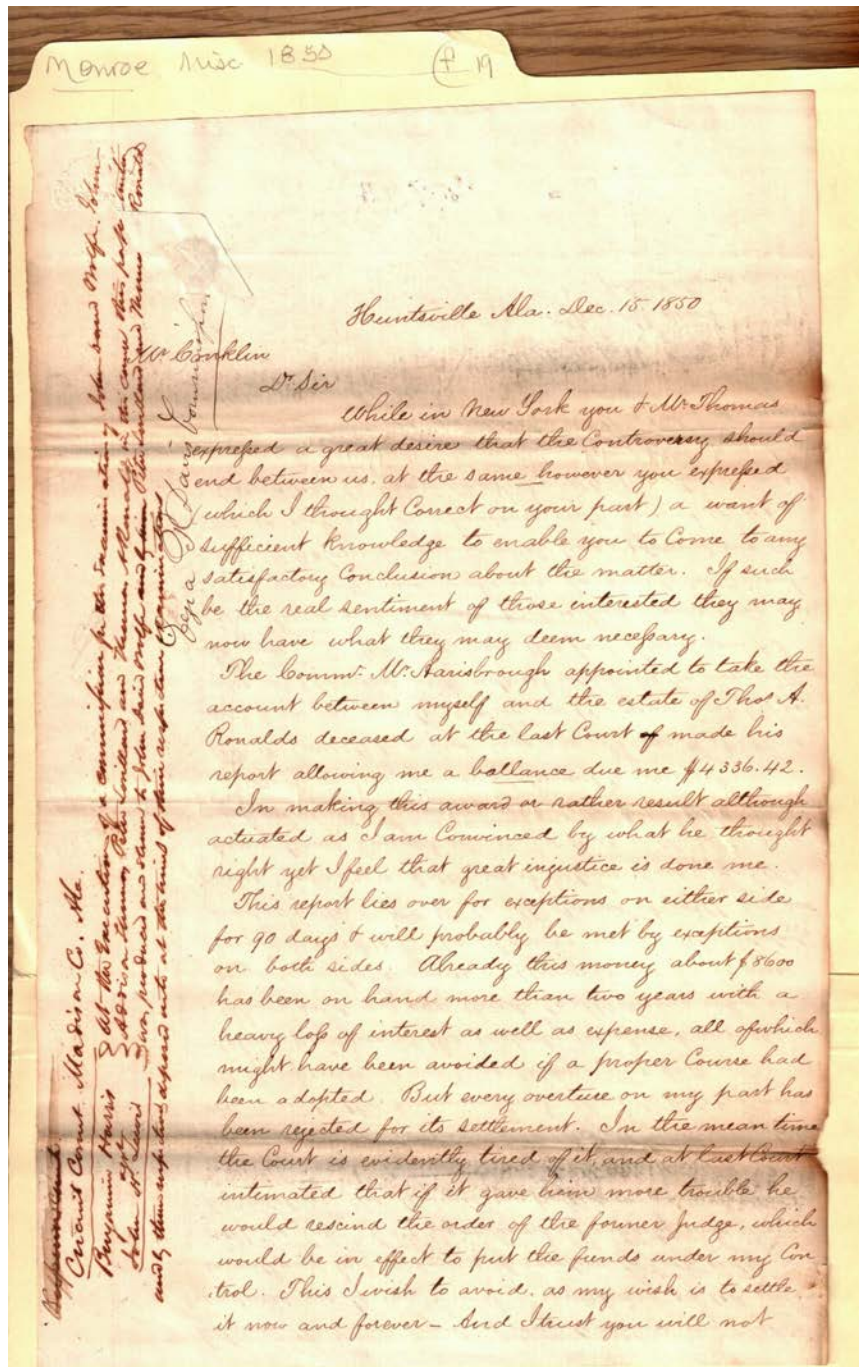 Monroe Misc 1850 f 19
Huntsville Ala. Dec. 15. 1850
Mr Conklin
Dr Sir
While in New York you & Mr Thomas
expressed a great desire that the Controversy should
end between us, at the same however you expressed
(which I thought Correct on your part) a want of
sufficient knowledge to enable you to Come to any
satisfactory Conclusion about the matter. If such
be the real sentiment of those interested they may
now have what they may deem necessary.
The Commr. Mr Harisbrough appointed to take the
account between myself and the estate of Thos A.
Ronalds deceased at the last Court of made his
report allowing me a ballance due me $4336.42.
In making this award or rather result although
actuated as I am Convinced by what he thought
right yet I feel that great injustice is done me.
This report lies over for exceptions on either side
for 90 days & will probably be met by exceptions
on both sides. Already this money about $8600
has been on hand more than two years with a
heavy loss of interest as well as expense, all of which
might have been avoided if a proper Course had
been adopted. But every overture on my part has
been rejected for its settlement. In the mean time
the Court is evidently tired of it, and at last Court
intimated that if it gave him more trouble he
would rescind the order of the former Judge, which
would be in effect to put the funds under my Con
trol. This I wish to avoid, as my wish is to settle
it now and forever - And I trust you will not
Circuit Court Madison Co. Ala.
Benjamin Harris
vs
John N. Lewis
At the Execution of a commission for the Examination of John David Wolfe, John
Addison Thomas, Peter Lorillard and Thomas A Ronalds in this cause this paper writing
was produced and shown to John David Wolfe and Peter Lorillard and Thomas Ronalds
and by them respectively deposed unto at the time of their respective examinations
Geo A. H. Davis Commissioner